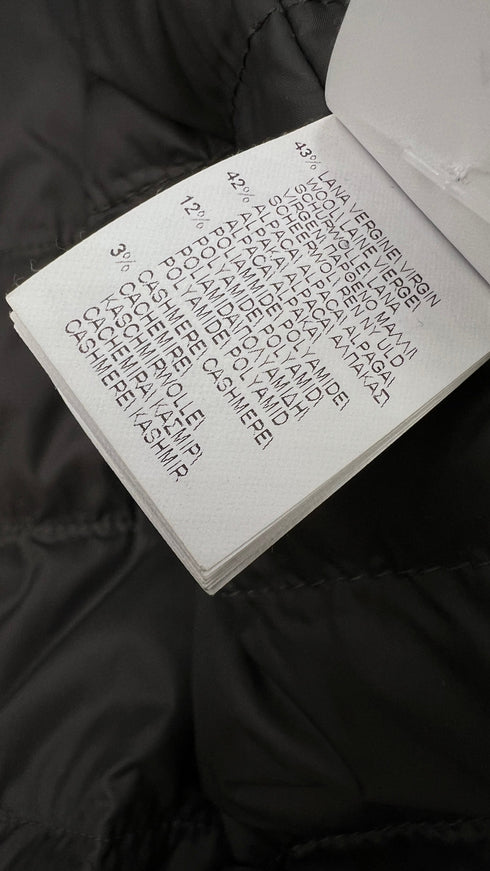 43% LANA VERGINE\ VIRGIN
WOOL\ LAINE VIERGE\
SCHURWOLLE\ LANA
VIRGEN\ ΠΑΡΘΕΝΟ ΜΑΛΛΙ\
SCHEERWOL\ REN NY ULD
42% ALPACA\ ALPACA\ ALPAGA\
ALPAKA\ ALPACA\ ΑΛΠΑΚΑΣ\
ALPACA\ ALPAKA
12% POLIAMMIDE\ POLYAMIDE\
POLYAMIDE\ POLYAMID\
POLIAMIDA\ ΠΟΛΥΑΜΙΔΗ\
POLYAMIDE\ POLYAMID
3% CASHMERE\ CASHMERE\
CACHEMIRE\
KASCHMIRWOLLE\
CACHEMIRA\ ΚΑΣΜΙΡ\
CASHMERE\ KASHMIR